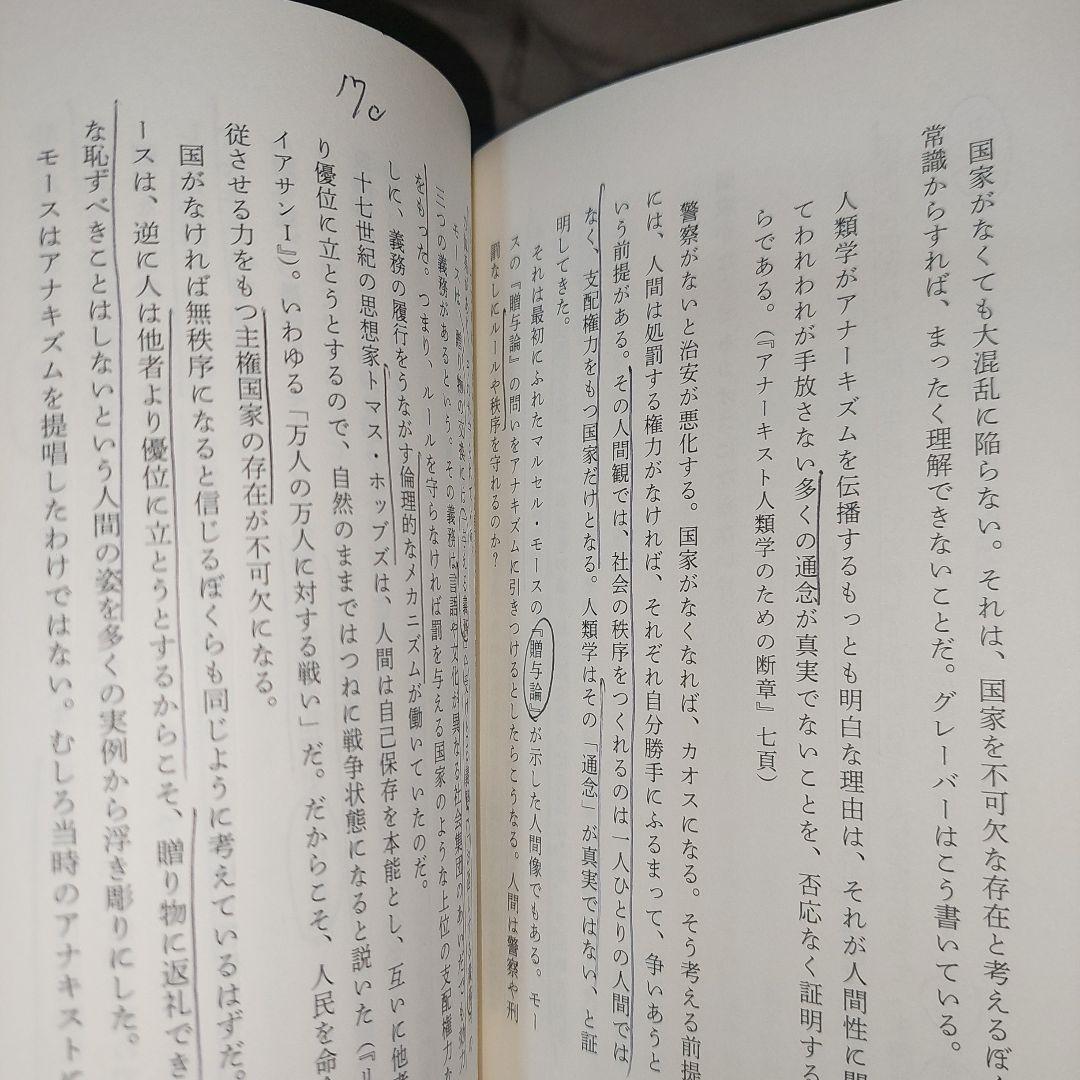 国家がなくても大混乱に陥らない。それは、国家を不可欠な存在と考えるぼ
常識からすれば、まったく理解できないことだ。グレーバーはこう書いている。
人類学がアナーキズムを伝播するもっとも明白な理由は、それが人間性に
てわれわれが手放さない多くの通念が真実でないことを、否応なく証明する
らである。（『アナーキスト人類学のための断章』七頁）
警察がないと治安が悪化する。国家がなくなれば、カオスになる。そう考える前提
には、人間は処罰する権力がなければ、それぞれ自分勝手にふるまって、争いあうと
いう前提がある。その人間観では、社会の秩序をつくれるのは一人ひとりの人間では
なく、支配権力をもつ国家だけとなる。人類学はその「通念」が真実ではない、と証
明してきた。
それは最初にふれたマルセル・モースの『贈与論』が示した人間像でもある。モー
スの『贈与論』の問いをアナキズムに引きつけるとしたらこうなる。人間は警察や刑
罰なしにルールや秩序を守れるのか？
17c
モースは、贈り物の交換には
三つの義務があるという。その義務は言語や文化が異なる社会集団のあいだでも効力
をもった。つまり、ルールを守らなければ罰を与える国家のような上位の支配権力な
しに、義務の履行をうながす倫理的なメカニズムが働いていたのだ。
十七世紀の思想家トマス・ホッブズは、人間は自己保存を本能とし、互いに他者
り優位に立とうとするので、自然のままではつねに戦争状態になると説いた（『リ
イアサンⅠ』）。いわゆる「万人の万人に対する戦い」だ。だからこそ、人民を命令
従させる力をもつ主権国家の存在が不可欠になる。
国がなければ無秩序になると信じるぼくらも同じように考えているはずだ。
ースは、逆に人は他者より優位に立とうとするからこそ、贈り物に返礼でき
な恥ずべきことはしないという人間の姿を多くの実例から浮き彫りにした。
モースはアナキズムを提唱したわけではない。むしろ当時のアナキスト